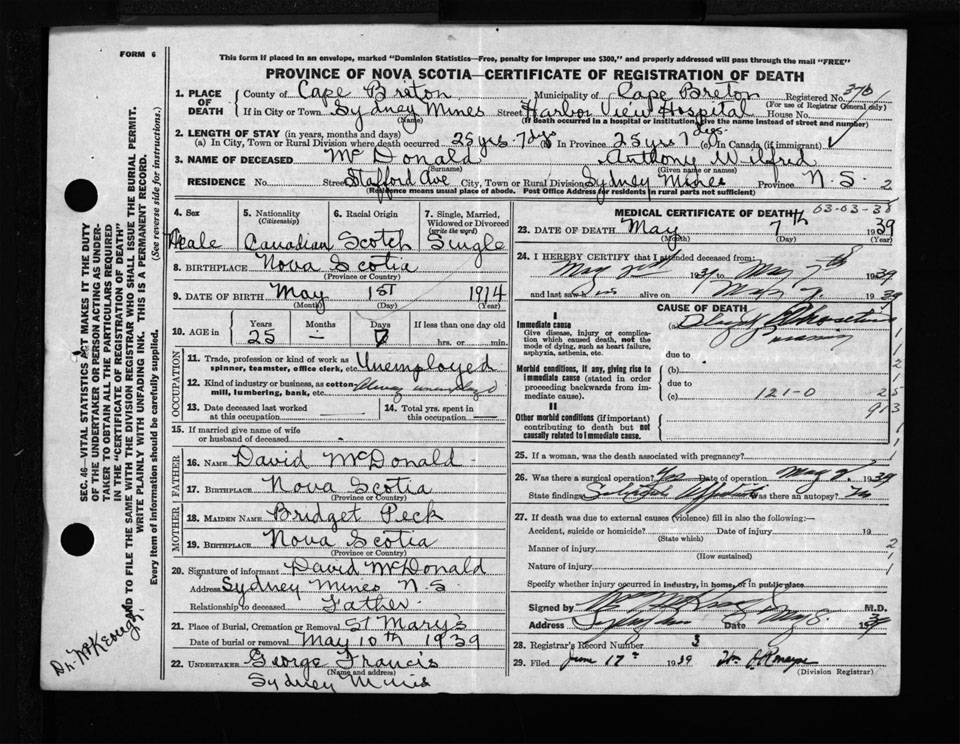 FORM 6
This form if placed in an envelope, marked "Dominion Statistics—Free, penalty for improper use $300," and properly addressed will pass through the mail "FREE"
PROVINCE OF NOVA SCOTIA—CERTIFICATE OF REGISTRATION OF DEATH
1. PLACE OF DEATH County of Cape Breton Municipality of Cape Breton Registered No.
(For use of Registrar General only)
If in City or Town Sydney Mines Street Harbor View Hospital House No.
(Name) (If death occurred in a hospital or institution, give the name instead of street and number)
2. LENGTH OF STAY (in years, months and days)
(a) In City, Town or Rural Division where death occurred 25 yrs 7 dys (b) In Province 25 yrs 7 dys (c) In Canada (if immigrant)
3. NAME OF DECEASED McDonald Anthony Wilfred
(Surname) (Given name or names)
RESIDENCE No. Street Stafford Ave City, Town or Rural Division Sydney Mines Province N.S. 2
(Residence means usual place of abode. Post Office Address for residents in rural parts not sufficient)
4. Sex Male
5. Nationality (Citizenship) Canadian
6. Racial Origin Scotch
7. Single, Married, Widowed or Divorced (write the word) Single
8. BIRTHPLACE Nova Scotia
(Province or Country)
9. DATE OF BIRTH May 1st 1914
(Month) (Day) (Year)
10. AGE in Years Months Days If less than one day old
25 — 7 hrs. or min.
OCCUPATION
11. Trade, profession or kind of work as spinner, teamster, office clerk, etc. Unemployed
12. Kind of industry or business, as cotton mill, lumbering, bank, etc.
13. Date deceased last worked at this occupation
14. Total yrs. spent in this occupation
15. If married give name of wife or husband of deceased
FATHER
16. NAME David McDonald
17. BIRTHPLACE Nova Scotia
(Province or Country)
MOTHER
18. MAIDEN NAME Bridget Peck
19. BIRTHPLACE Nova Scotia
(Province or Country)
20. Signature of informant David McDonald
Address Sydney Mines N.S.
Relationship to deceased Father
21. Place of Burial, Cremation or Removal St Mary's
Date of burial or removal May 10th 1939
22. UNDERTAKER George Francis
(Name and address)
Sydney Mines
MEDICAL CERTIFICATE OF DEATH 63-03-38
23. DATE OF DEATH May 7th 1939
(Month) (Day) (Year)
24. I HEREBY CERTIFY that I attended deceased from:
May 2nd 1939 to May 7th 1939
and last saw him alive on May 7 1939
CAUSE OF DEATH
I
Immediate cause
Give disease, injury or complication which caused death, not the mode of dying, such as heart failure, asphyxia, asthenia, etc.
(a)
due to
Morbid conditions, if any, giving rise to immediate cause (stated in order proceeding backwards from immediate cause).
(b)
due to
(c) 121-0
II
Other morbid conditions (if important) contributing to death but not causally related to immediate cause.
25. If a woman, was the death associated with pregnancy?
26. Was there a surgical operation? Yes Date of operation May 2 1939
State findings Was there an autopsy? No
27. If death was due to external causes (violence) fill in also the following:—
Accident, suicide or homicide? Date of injury 19
(State which)
Manner of injury
(How sustained)
Nature of injury
Specify whether injury occurred in industry, in home, or in public place
Signed by M.D.
Address Date May 8 1939
28. Registrar's Record Number 3
29. Filed June 17th 1939
(Division Registrar)
SEC. 46—VITAL STATISTICS ACT MAKES IT THE DUTY
OF THE UNDERTAKER OR PERSON ACTING AS UNDER-
TAKER TO OBTAIN ALL THE PARTICULARS REQUIRED
IN THE "CERTIFICATE OF REGISTRATION OF DEATH"
AND TO FILE THE SAME WITH THE DIVISION REGISTRAR WHO SHALL ISSUE THE BURIAL PERMIT.
WRITE PLAINLY WITH UNFADING INK. THIS IS A PERMANENT RECORD.
Every item of information should be carefully supplied. (See reverse side for instructions.)